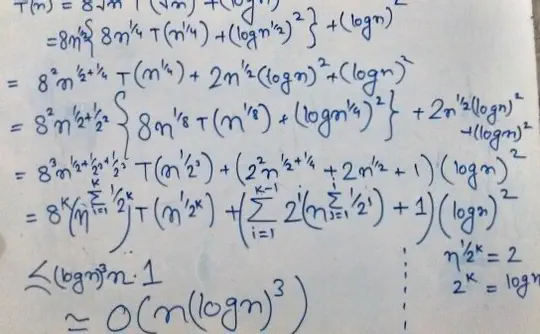 T(n) = 8√n T(√n) + (logn)²
= 8n^{1/2} { 8n^{1/4} T(n^{1/4}) + (logn^{1/2})² } + (logn)²
= 8² n^{1/2+1/4} T(n^{1/4}) + 2n^{1/2}(logn)² + (logn)²
= 8² n^{1/2+1/2²} { 8n^{1/8} T(n^{1/8}) + (logn^{1/4})² } + 2n^{1/2}(logn)² + (logn)²
= 8³ n^{1/2+1/2²+1/2³} T(n^{1/2³}) + (2² n^{1/2+1/4} + 2n^{1/2} + 1)(logn)²
= 8^k (n^{∑_{i=1}^{k} 1/2^k}) T(n^{1/2^k}) + (∑_{i=1}^{k-1} 2^i (n^{∑_{j=1}^{i} 1/2^j}) + 1)(logn)²
n^{1/2^k} = 2
2^k = logn
≤ (logn)³ n · 1
≃ O(n(logn)³)